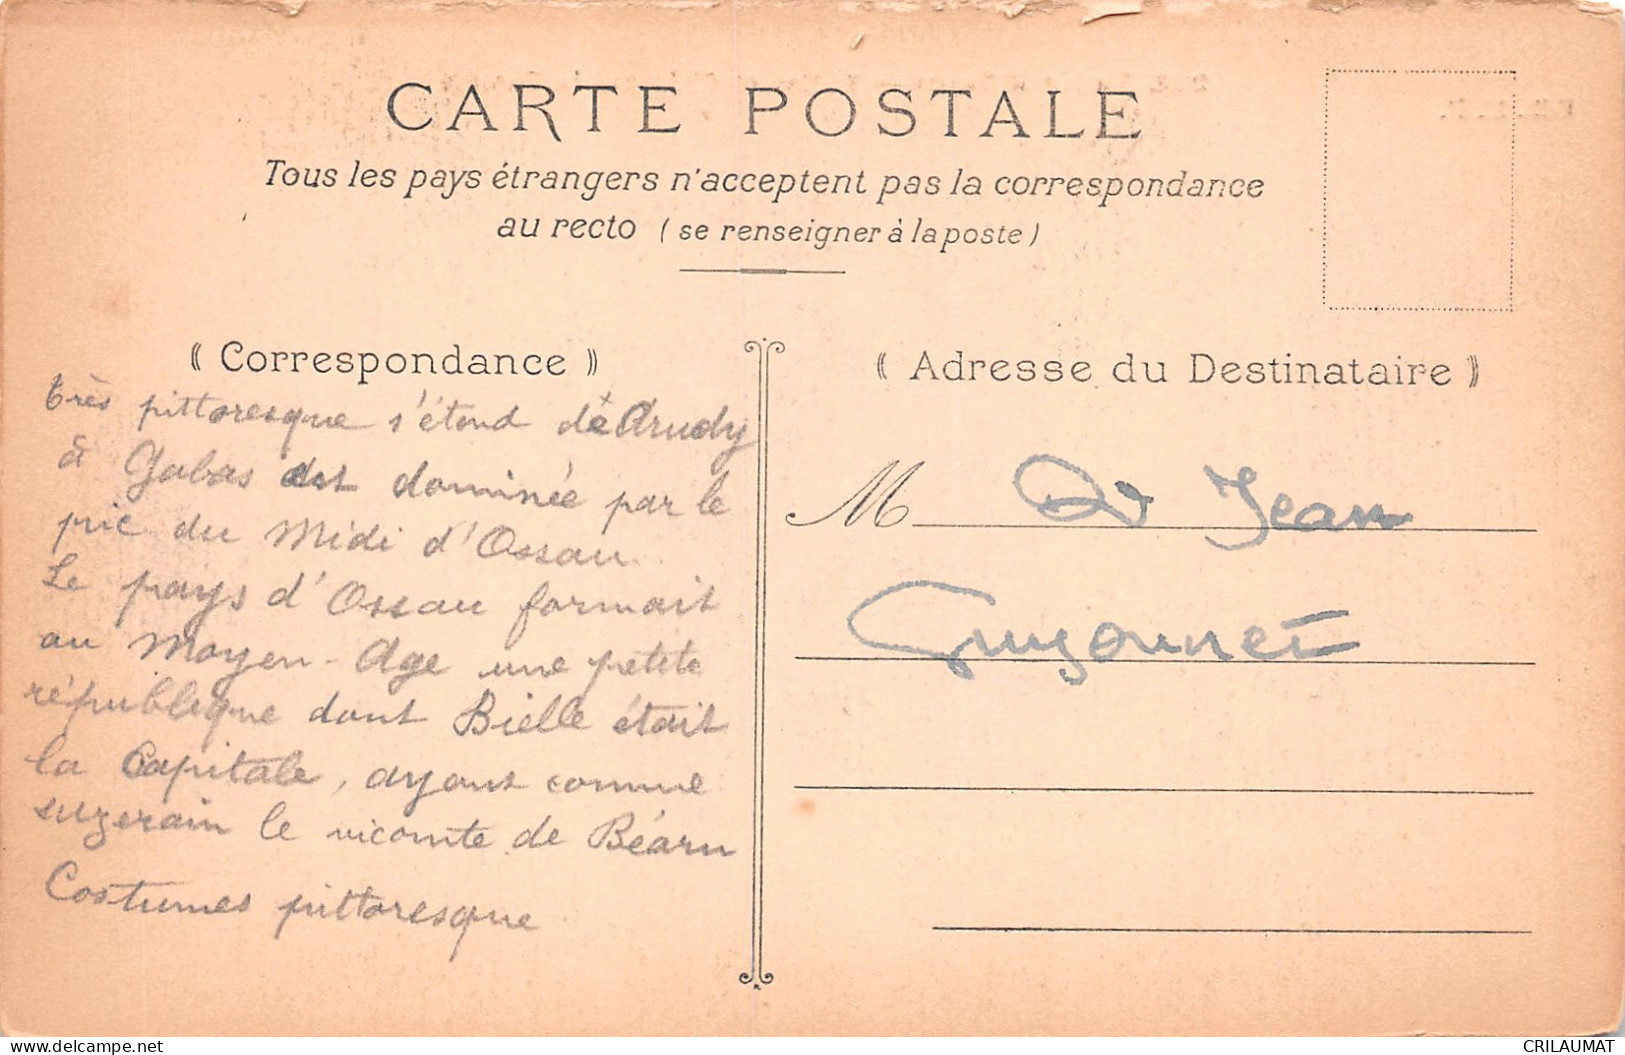 CARTE POSTALE
Tous les pays étrangers n'acceptent pas la correspondance
au recto (se renseigner à la poste)
« Correspondance »
très pittoresque s'étend de Arudy
à Gabas est dominée par le
pic du Midi d'Ossau.
Le pays d'Ossau formait
au Moyen-Age une petite
république dont Bielle était
la Capitale, ayant comme
suzerain le vicomte de Béarn
Costumes pittoresque
« Adresse du Destinataire »
M Dr Jean
Guyonnet
CRILAUMAT